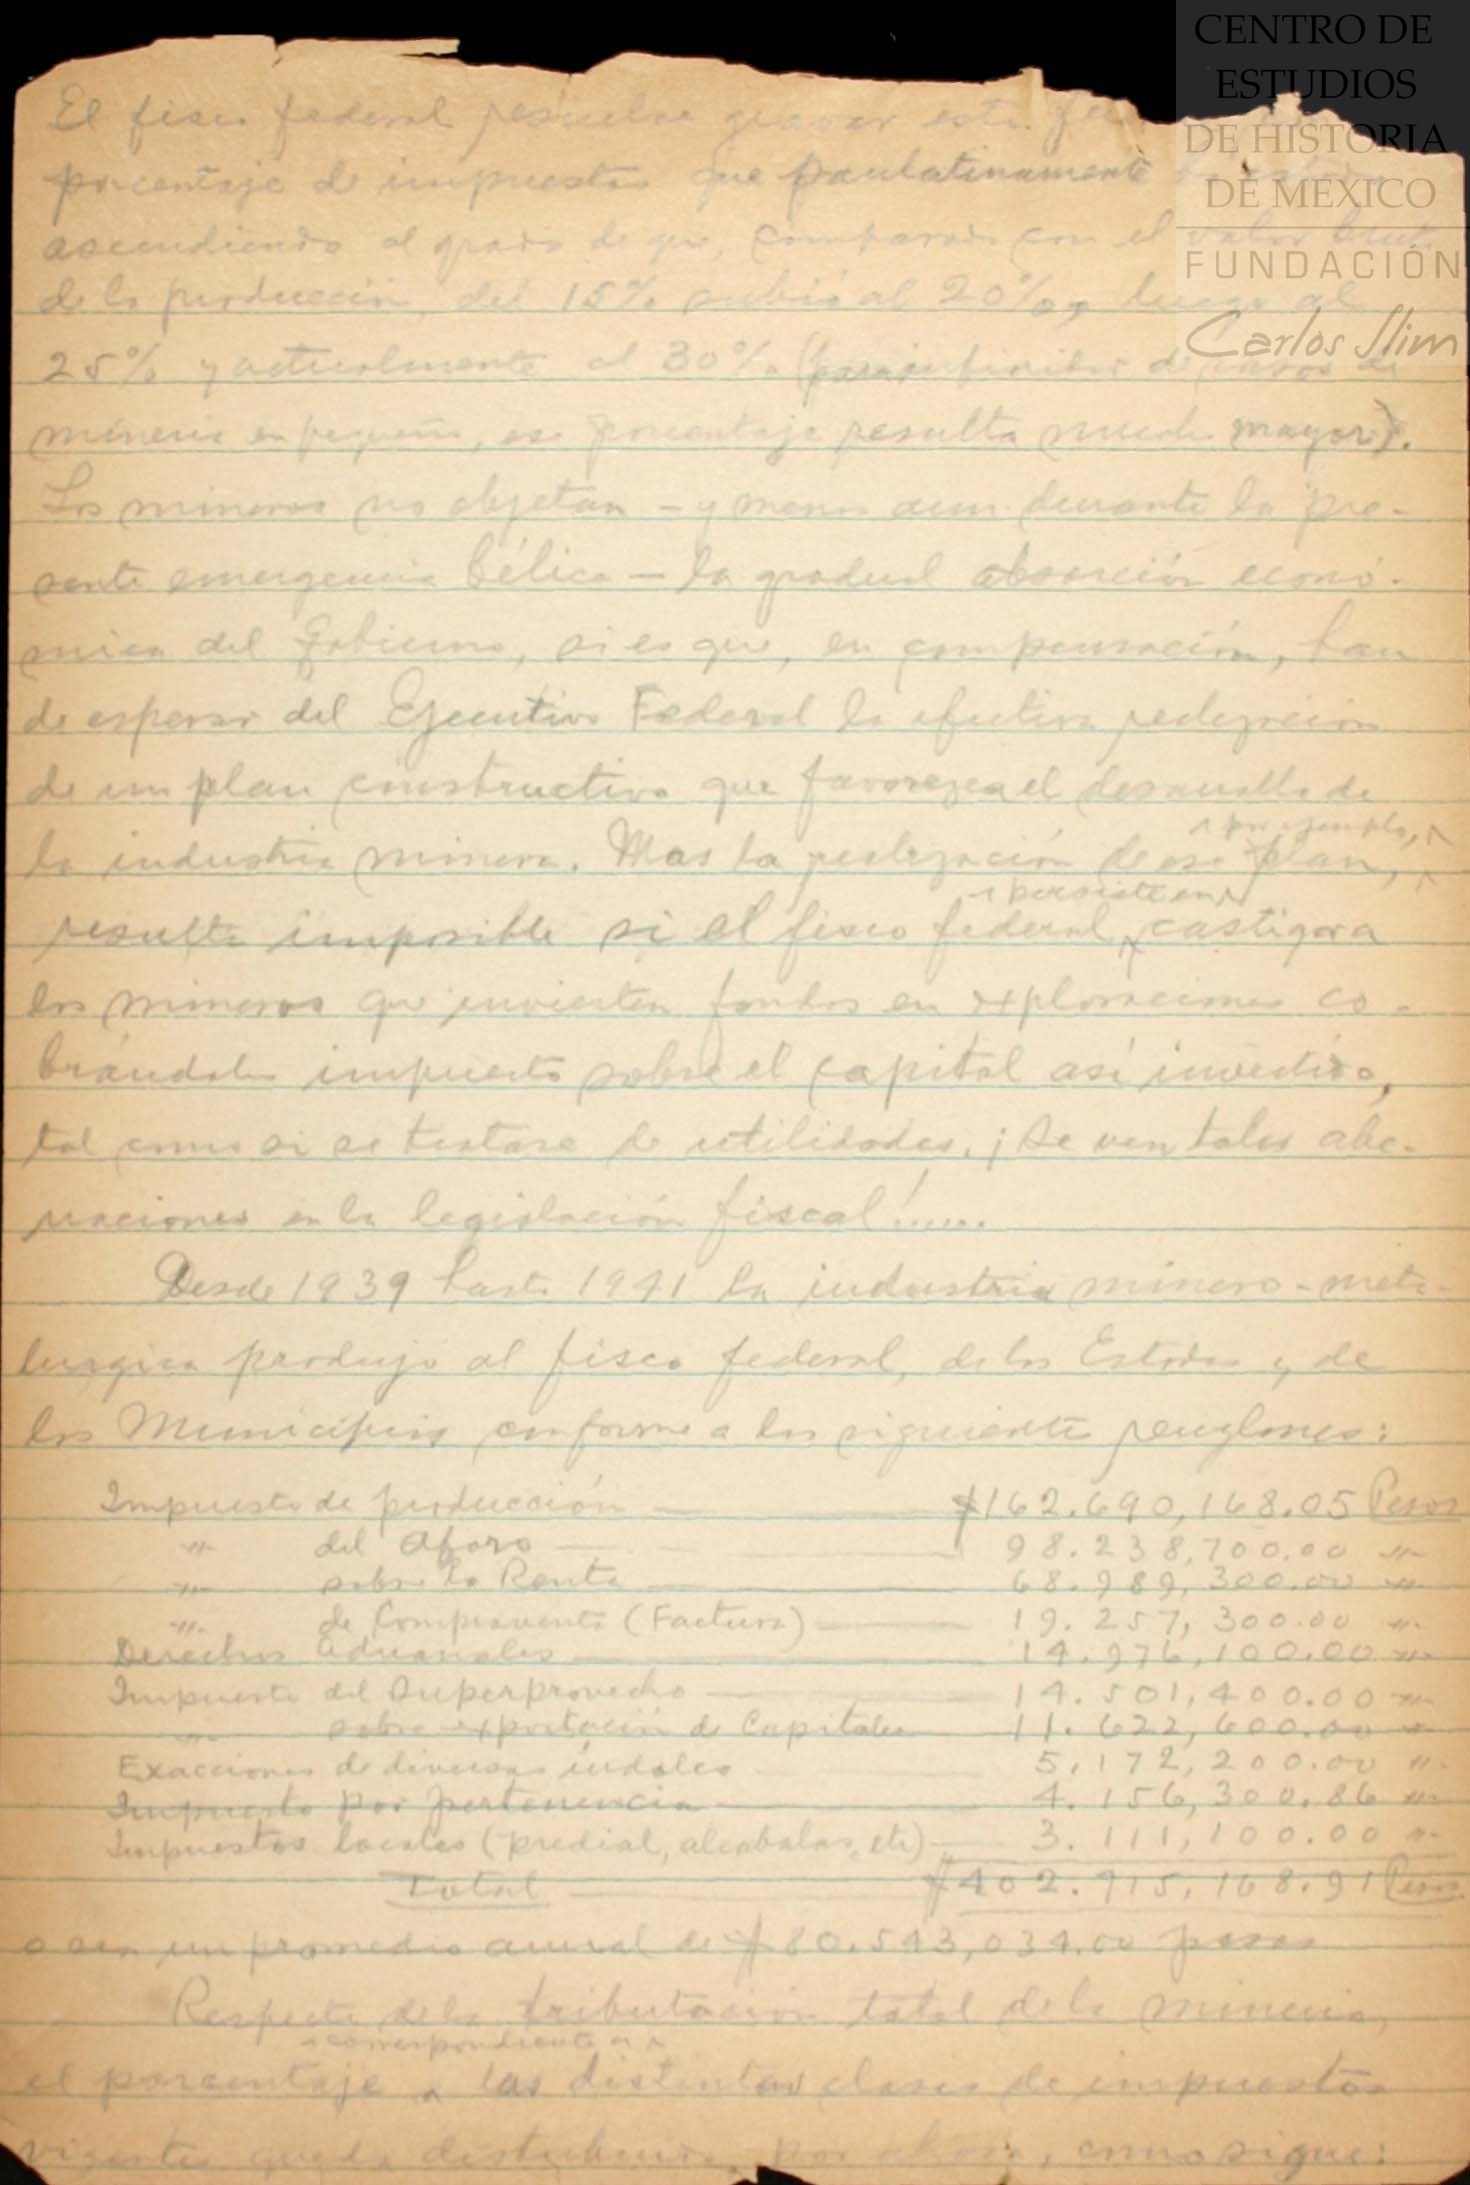 CENTRO DE
ESTUDIOS
DE HISTORIA
DE MEXICO
FUNDACIÓN
Carlos Slim
El fisco federal resuelve gravar este
porcentaje de impuestos que paulatinamente
ascendiendo al grado de que, comparado con el valor bruto
de la producción, del 15% subió al 20%, luego al
25% y actualmente al 30% (para infinidad de casos de
minería en pequeño, ese porcentaje resulta mucho mayor).
Los mineros no objetan - y menos aun durante la pre-
sente emergencia bélica - la gradual absorción econó-
mica del Gobierno, si es que, en compensación, han
de esperar del Ejecutivo Federal la efectiva realización
de un plan constructivo que favorezca el desarrollo de
la industria minera. Mas la realización de ese plan, por ejemplo,
resulta imposible si el fisco federal persiste en castigar a
los mineros que invierten fondos en exploraciones co-
brándoles impuesto sobre el capital así invertido,
tal como si se tratase de utilidades. ¡Se ven tales abe-
rraciones en la legislación fiscal!.....
Desde 1939 hasta 1941 la industria minero-meta-
lurgica produjo al fisco federal, de los Estados y de
los Municipios conforme a los siguientes renglones:
Impuesto de producción — $162.690,168.05 Pesos
" del Aforo — 98.238,700.00 "
" sobre la Renta — 68.989,300.00 "
" de Compraventa (Factura) — 19.257,300.00 "
Derechos Aduanales — 14.976,100.00 "
Impuesto del Superprovecho — 14.501,400.00 "
" sobre exportación de Capitales — 11.622,600.00 "
Exacciones de diversas índoles — 5,172,200.00 "
Impuesto por pertenencia — 4.156,300.86 "
Impuestos locales (predial, alcabalas, etc) — 3.111,100.00 "
Total — $402.715,168.91 Pesos
o sea un promedio anual de $80.543,034.00 pesos
Respecto de la tributación total de la minería,
correspondiente a
el porcentaje a las distintas clases de impuestos
vigentes queda distribuido, por ahora, como sigue: